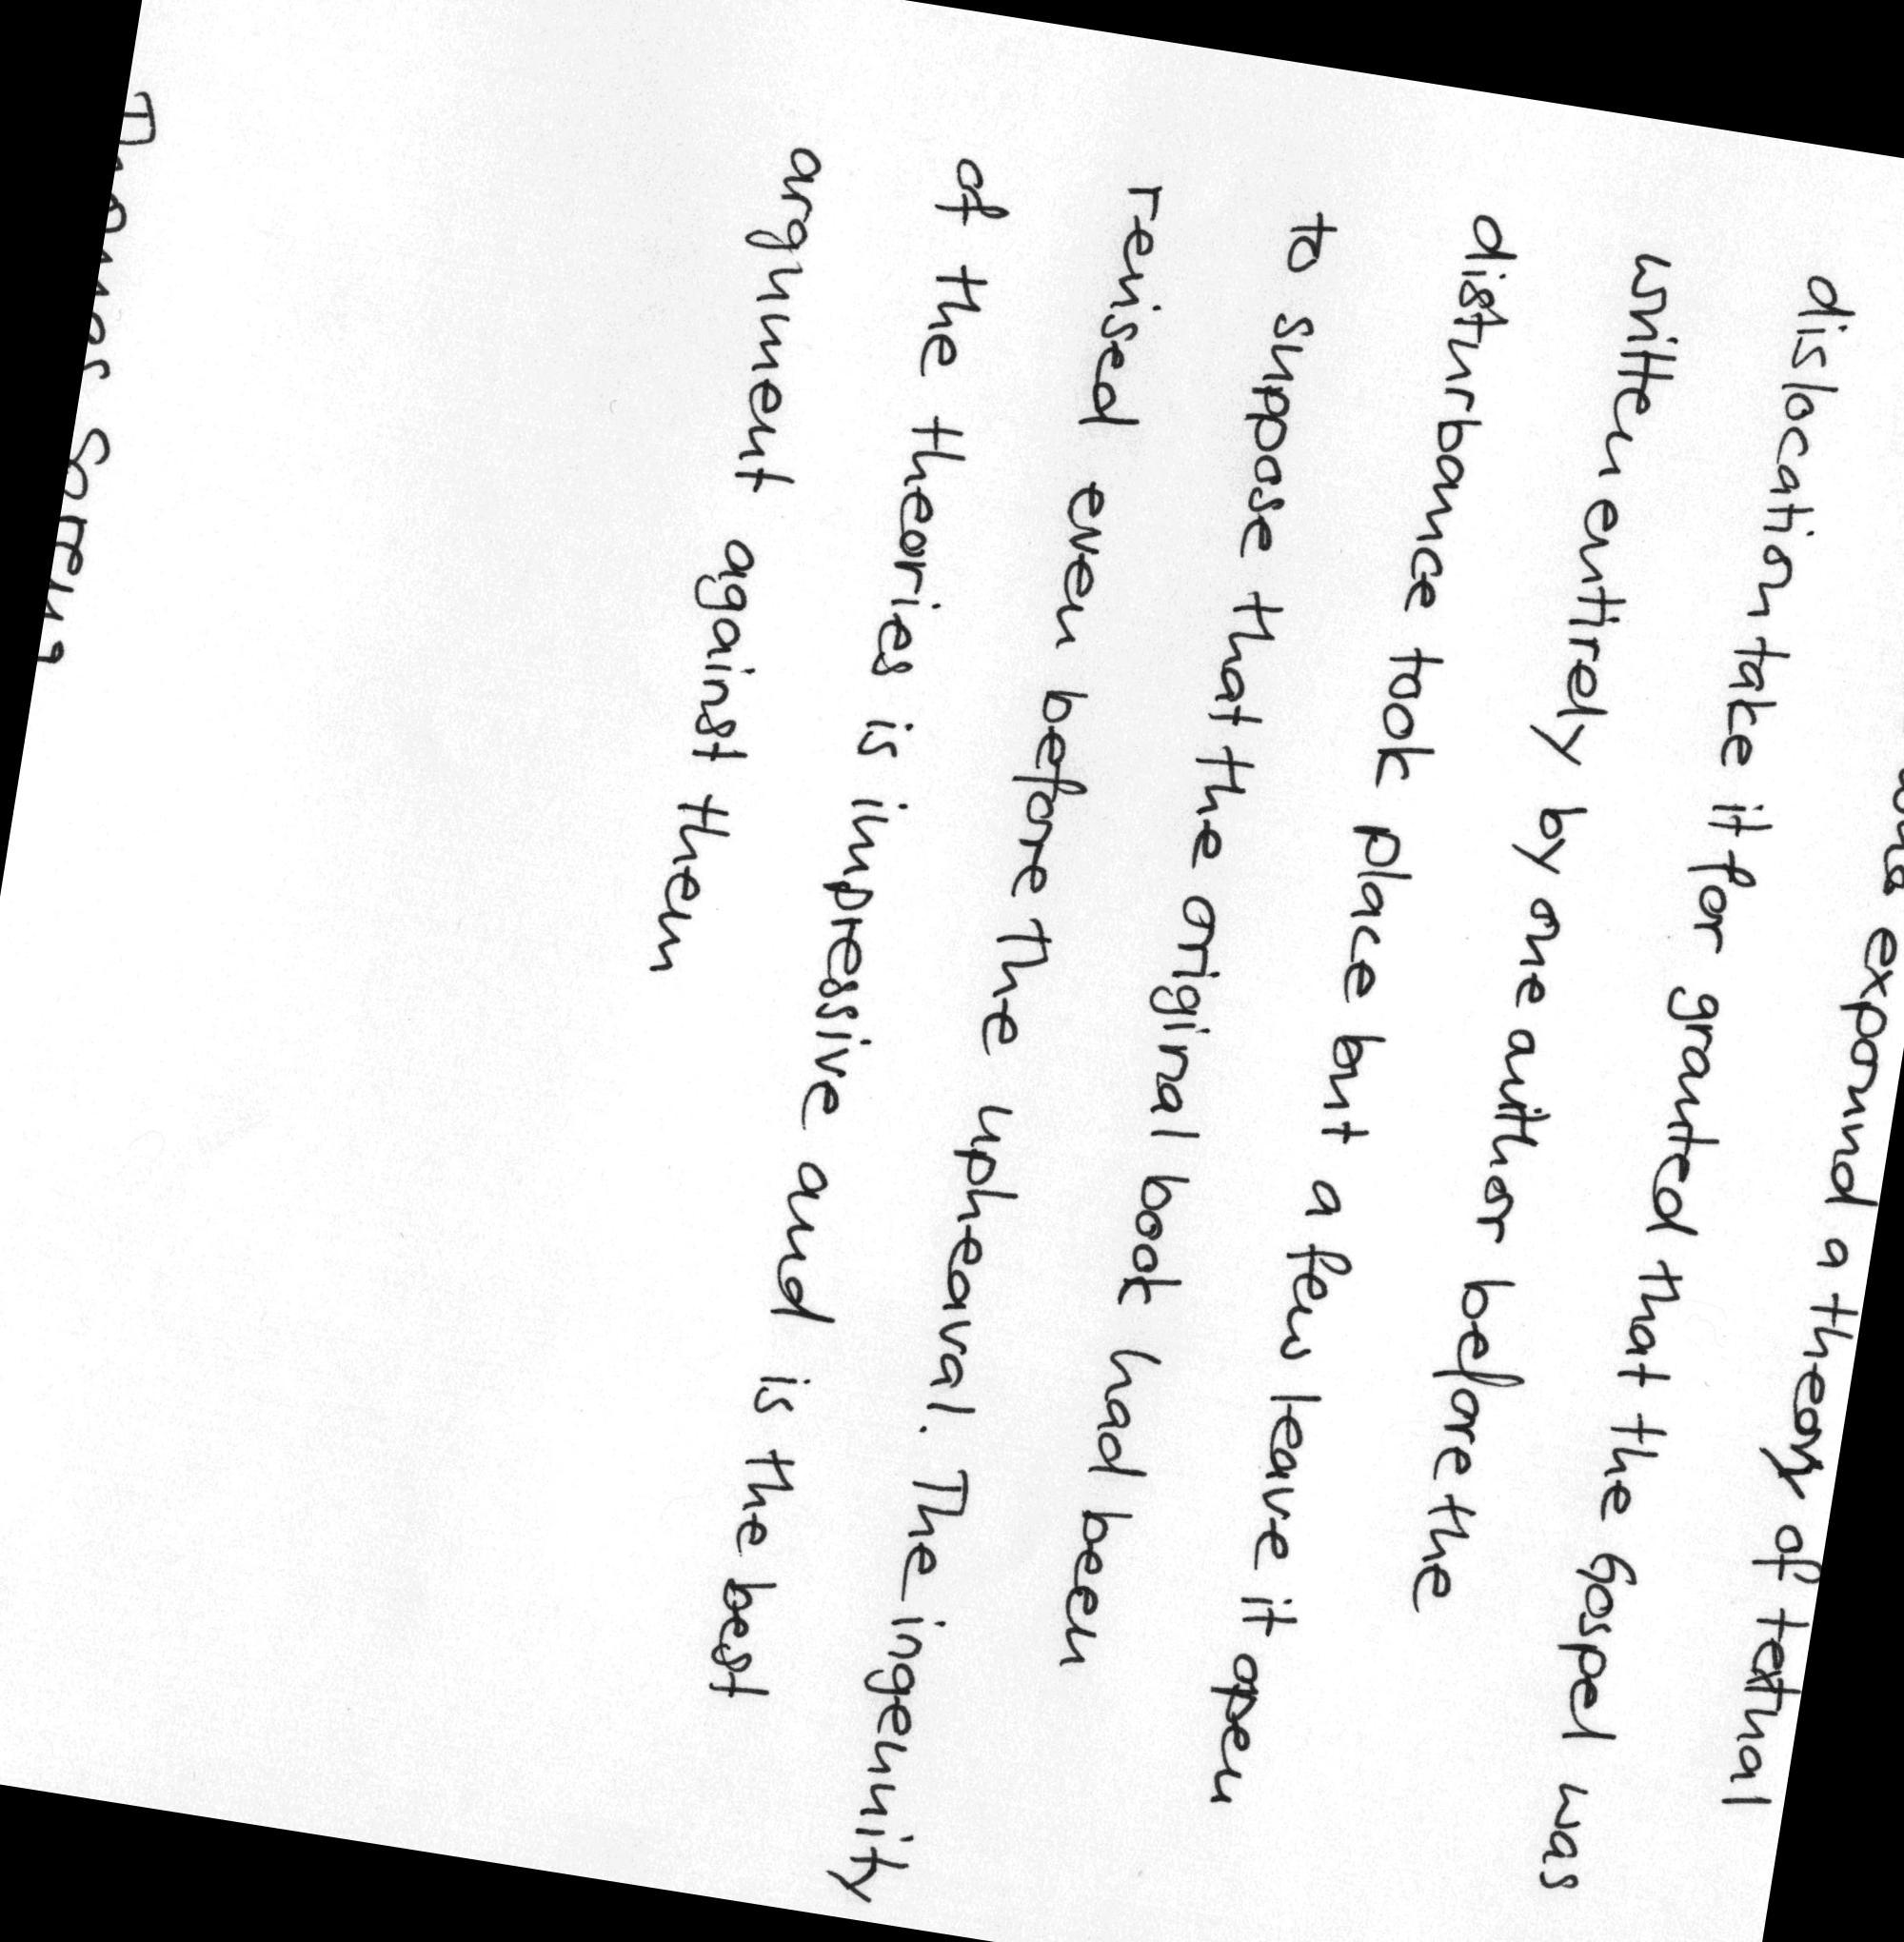 expound a theory of textual
dislocation take it for granted that the Gospel was
written entirely by one author before the
disturbance took place but a few leave it open
to suppose that the original book had been
revised even before the upheaval. The ingenuity
of the theories is impressive and is the best
argument against them